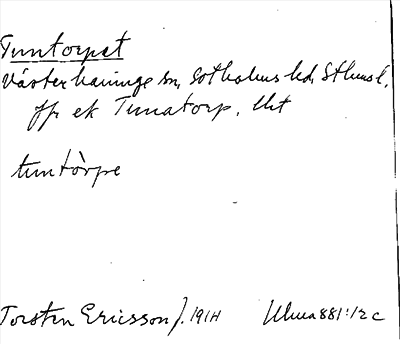 Tuntorpet
Västerhaninge sn, Sotholms hd, Sthms l.
jfr ek Tunatorp,
tuntòrpe
Torsten Ericsson f. 1914 Uma 881:12 c